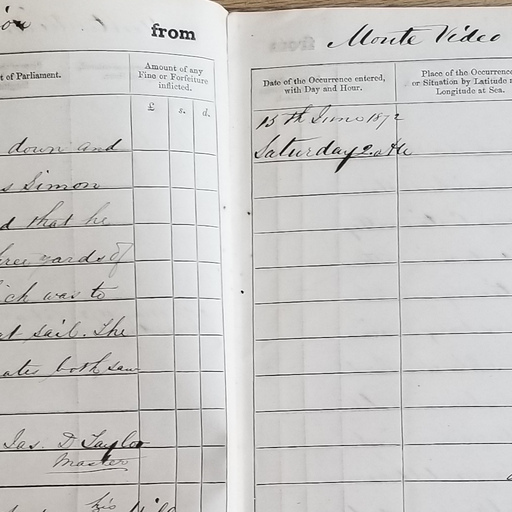 from
t of Parliament.
Amount of any
Fine or Forfeiture
inflicted.
£ s. d.
down and
s Simon
d that he
hree yards of
ich was to
at sail. The
ates both saw
Jas. D Taylor
Master
his
Monte Video
Date of the Occurrence entered,
with Day and Hour.
Place of the Occurrenc
or Situation by Latitude a
Longitude at Sea.
15th June 1872
Saturday 2